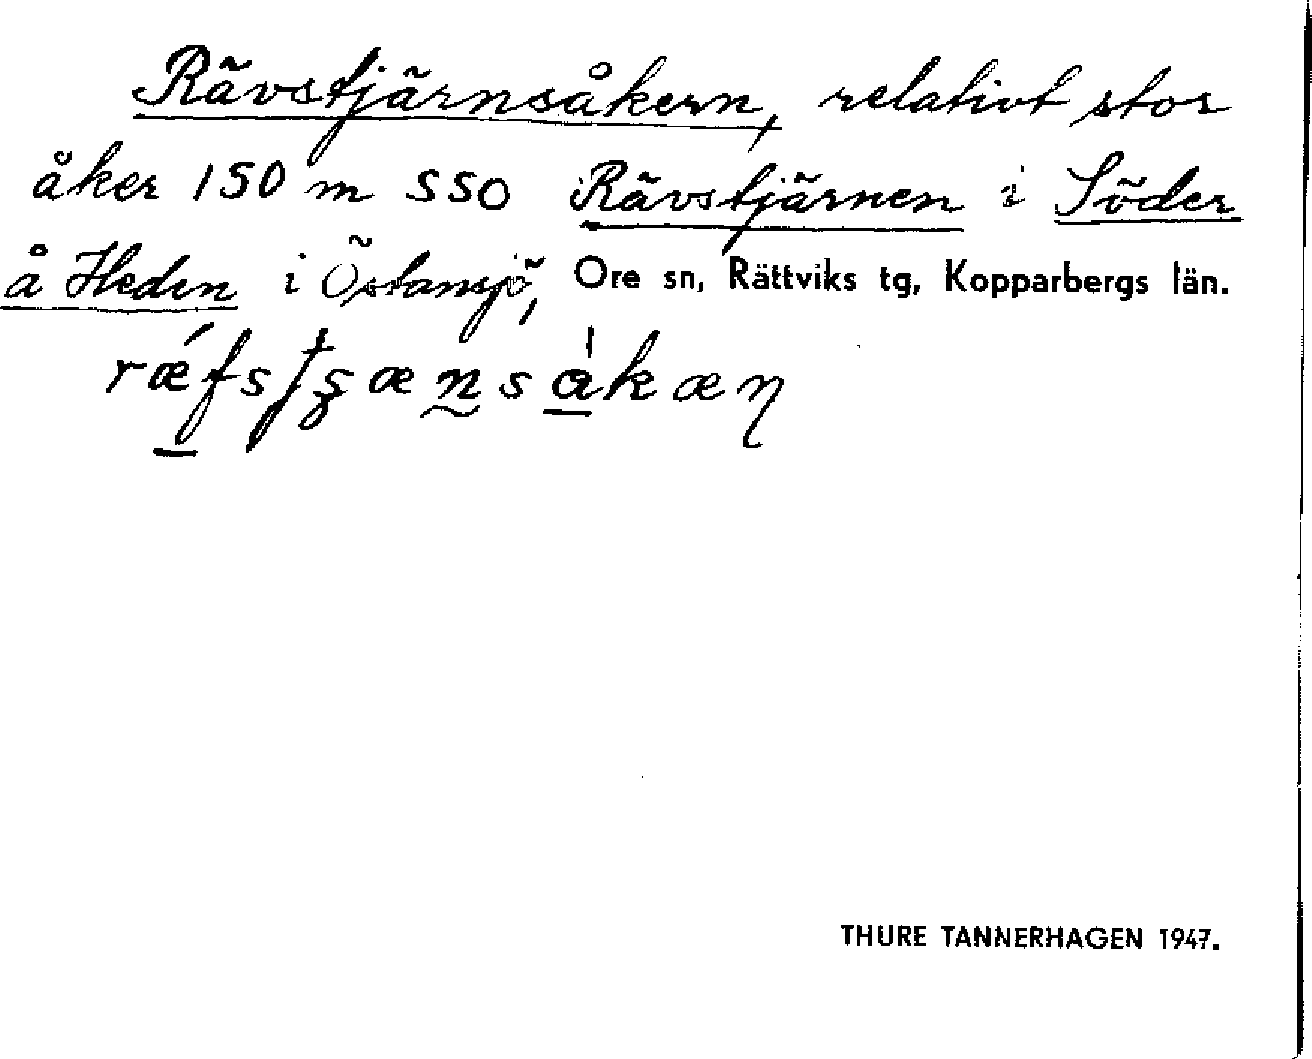 Rävstjärnsåkern, relativt stor
åker 150 m SSO Rävstjärnen i Söder
å Heden i Östansjö, Ore sn, Rättviks tg, Kopparbergs län.
THURE TANNERHAGEN 1947.